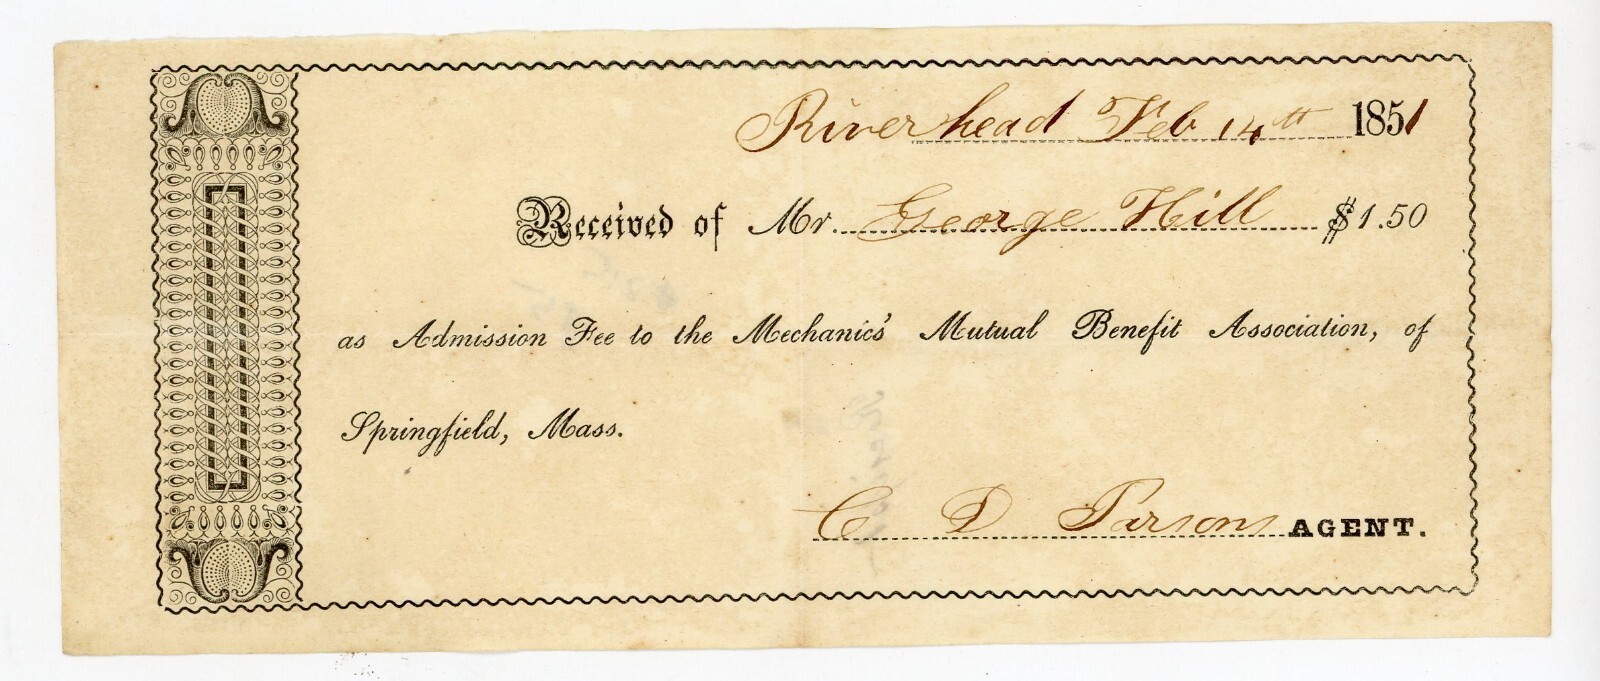 Riverhead Feb 14th 1851
Received of Mr. George Hill $1.50
as Admission Fee to the Mechanics' Mutual Benefit Association, of
Springfield, Mass.
C D Parsons AGENT.